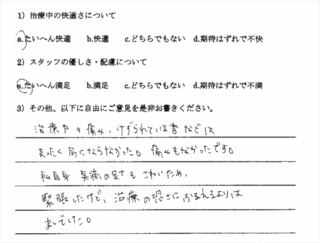 1）治療中の快適さについて
a.たいへん快適 b.快適 c.どちらでもない d.期待はずれで不快
2）スタッフの優しさ・配慮について
a.たいへん満足 b.満足 c.どちらでもない d.期待はずれで不満
3）その他、以下に自由にご意見を是非お書きください。
治療中の痛み、けずられている音などは
まったく気にならなかった。痛みもなかったです。
私自身 麻酔の こわいため、
緊張したけど、治療の恐さに ふるえるよりは
ましでした。